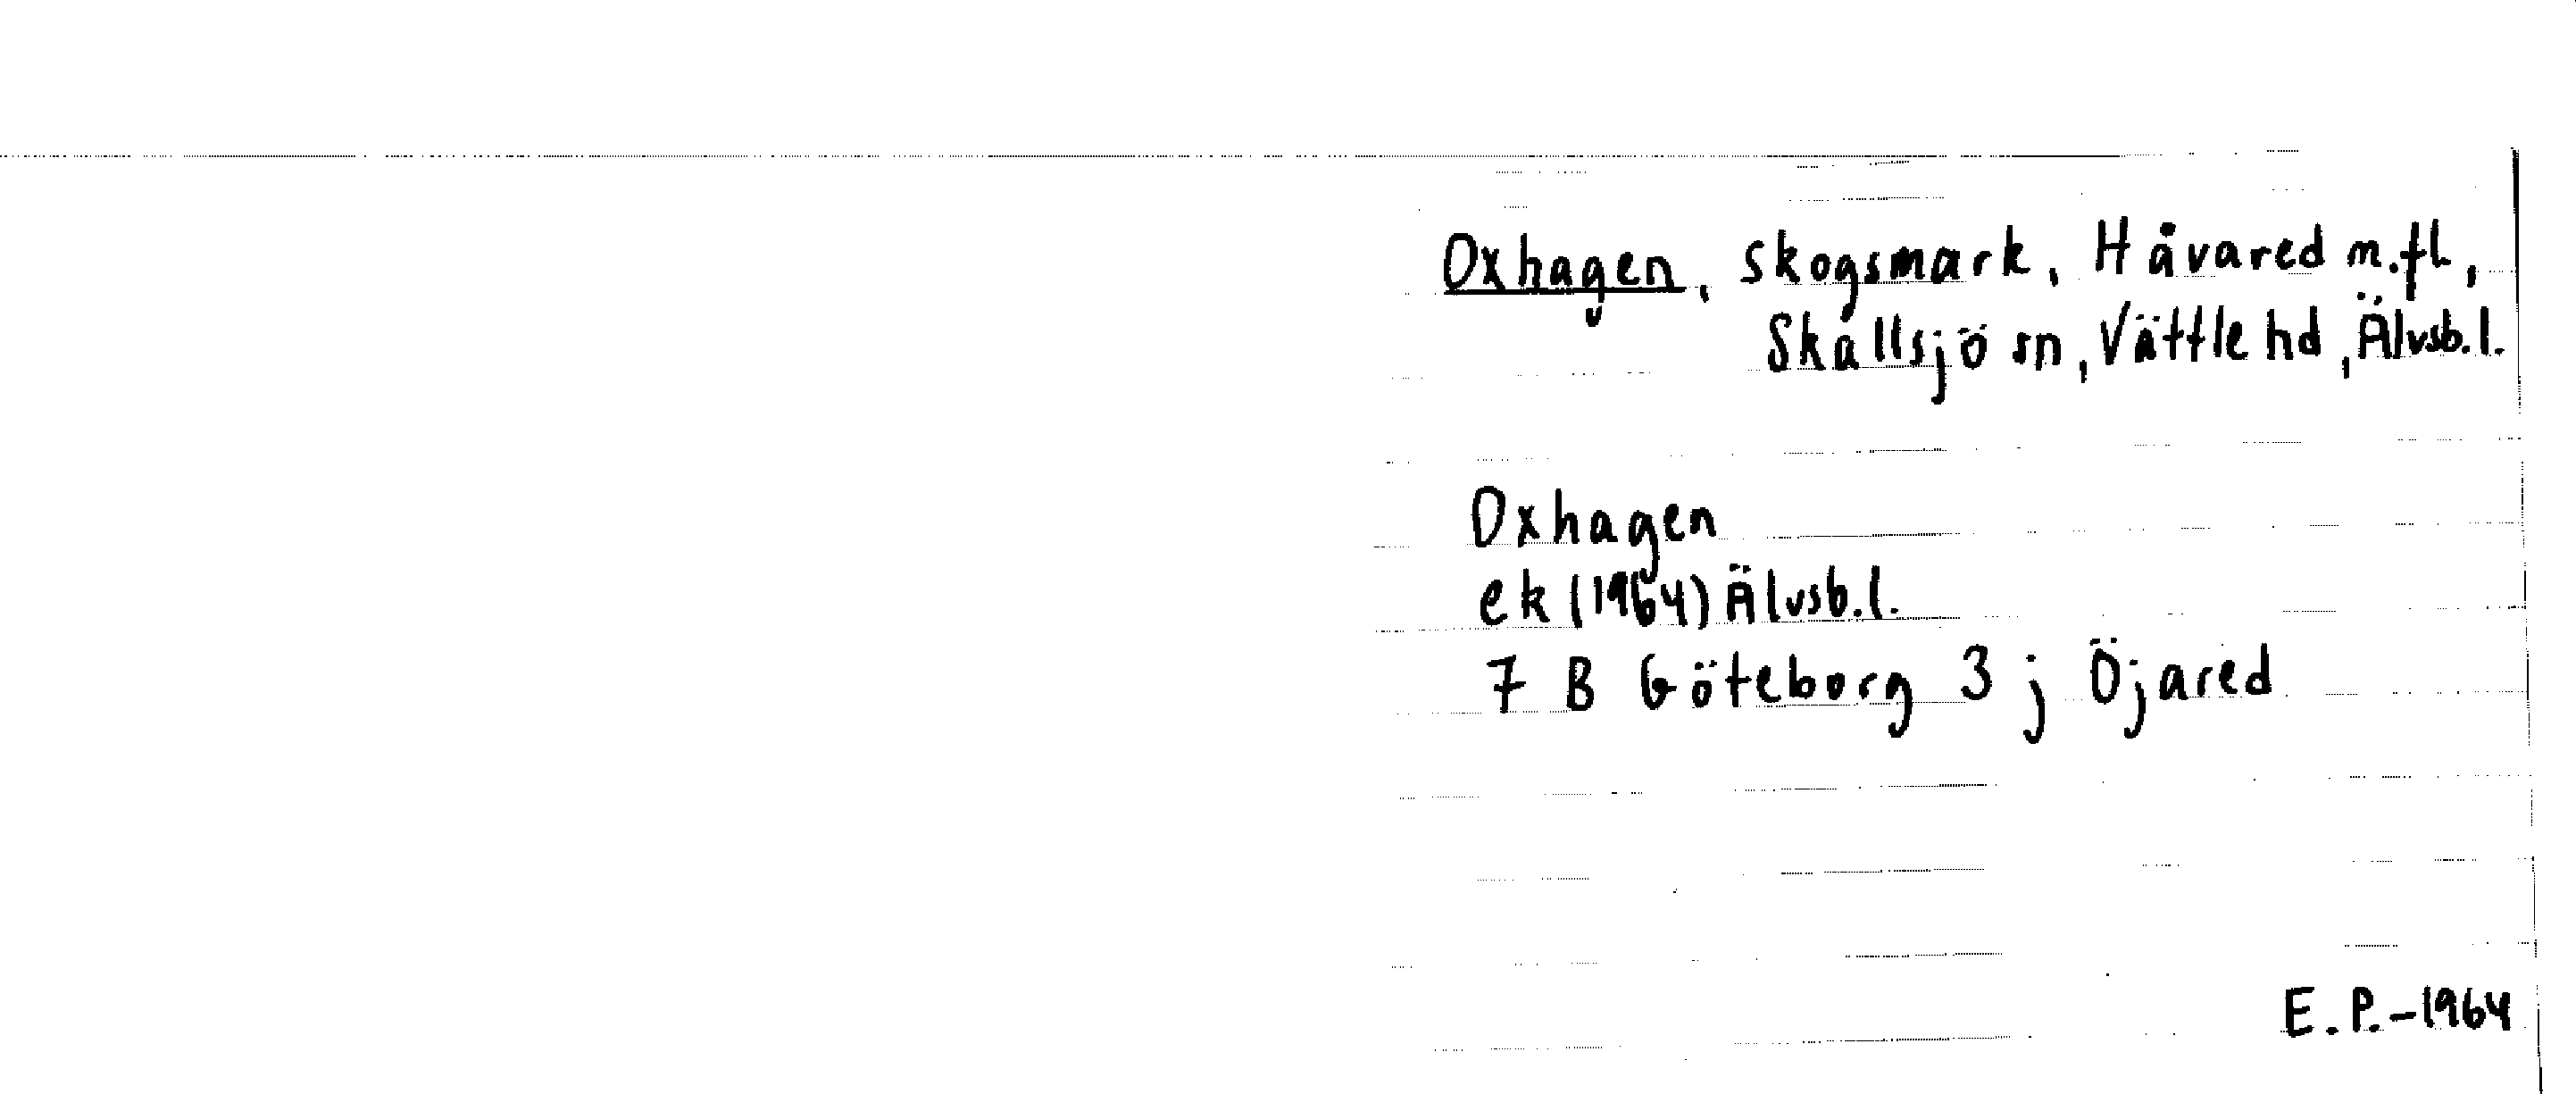 Oxhagen, skogsmark, Håvared m.fl.,
Skallsjö sn, Vättle hd, Älvsb.l.
Oxhagen
ek (1964) Älvsb.l.
7 B Göteborg 3 j Öjared
E.P.-1964